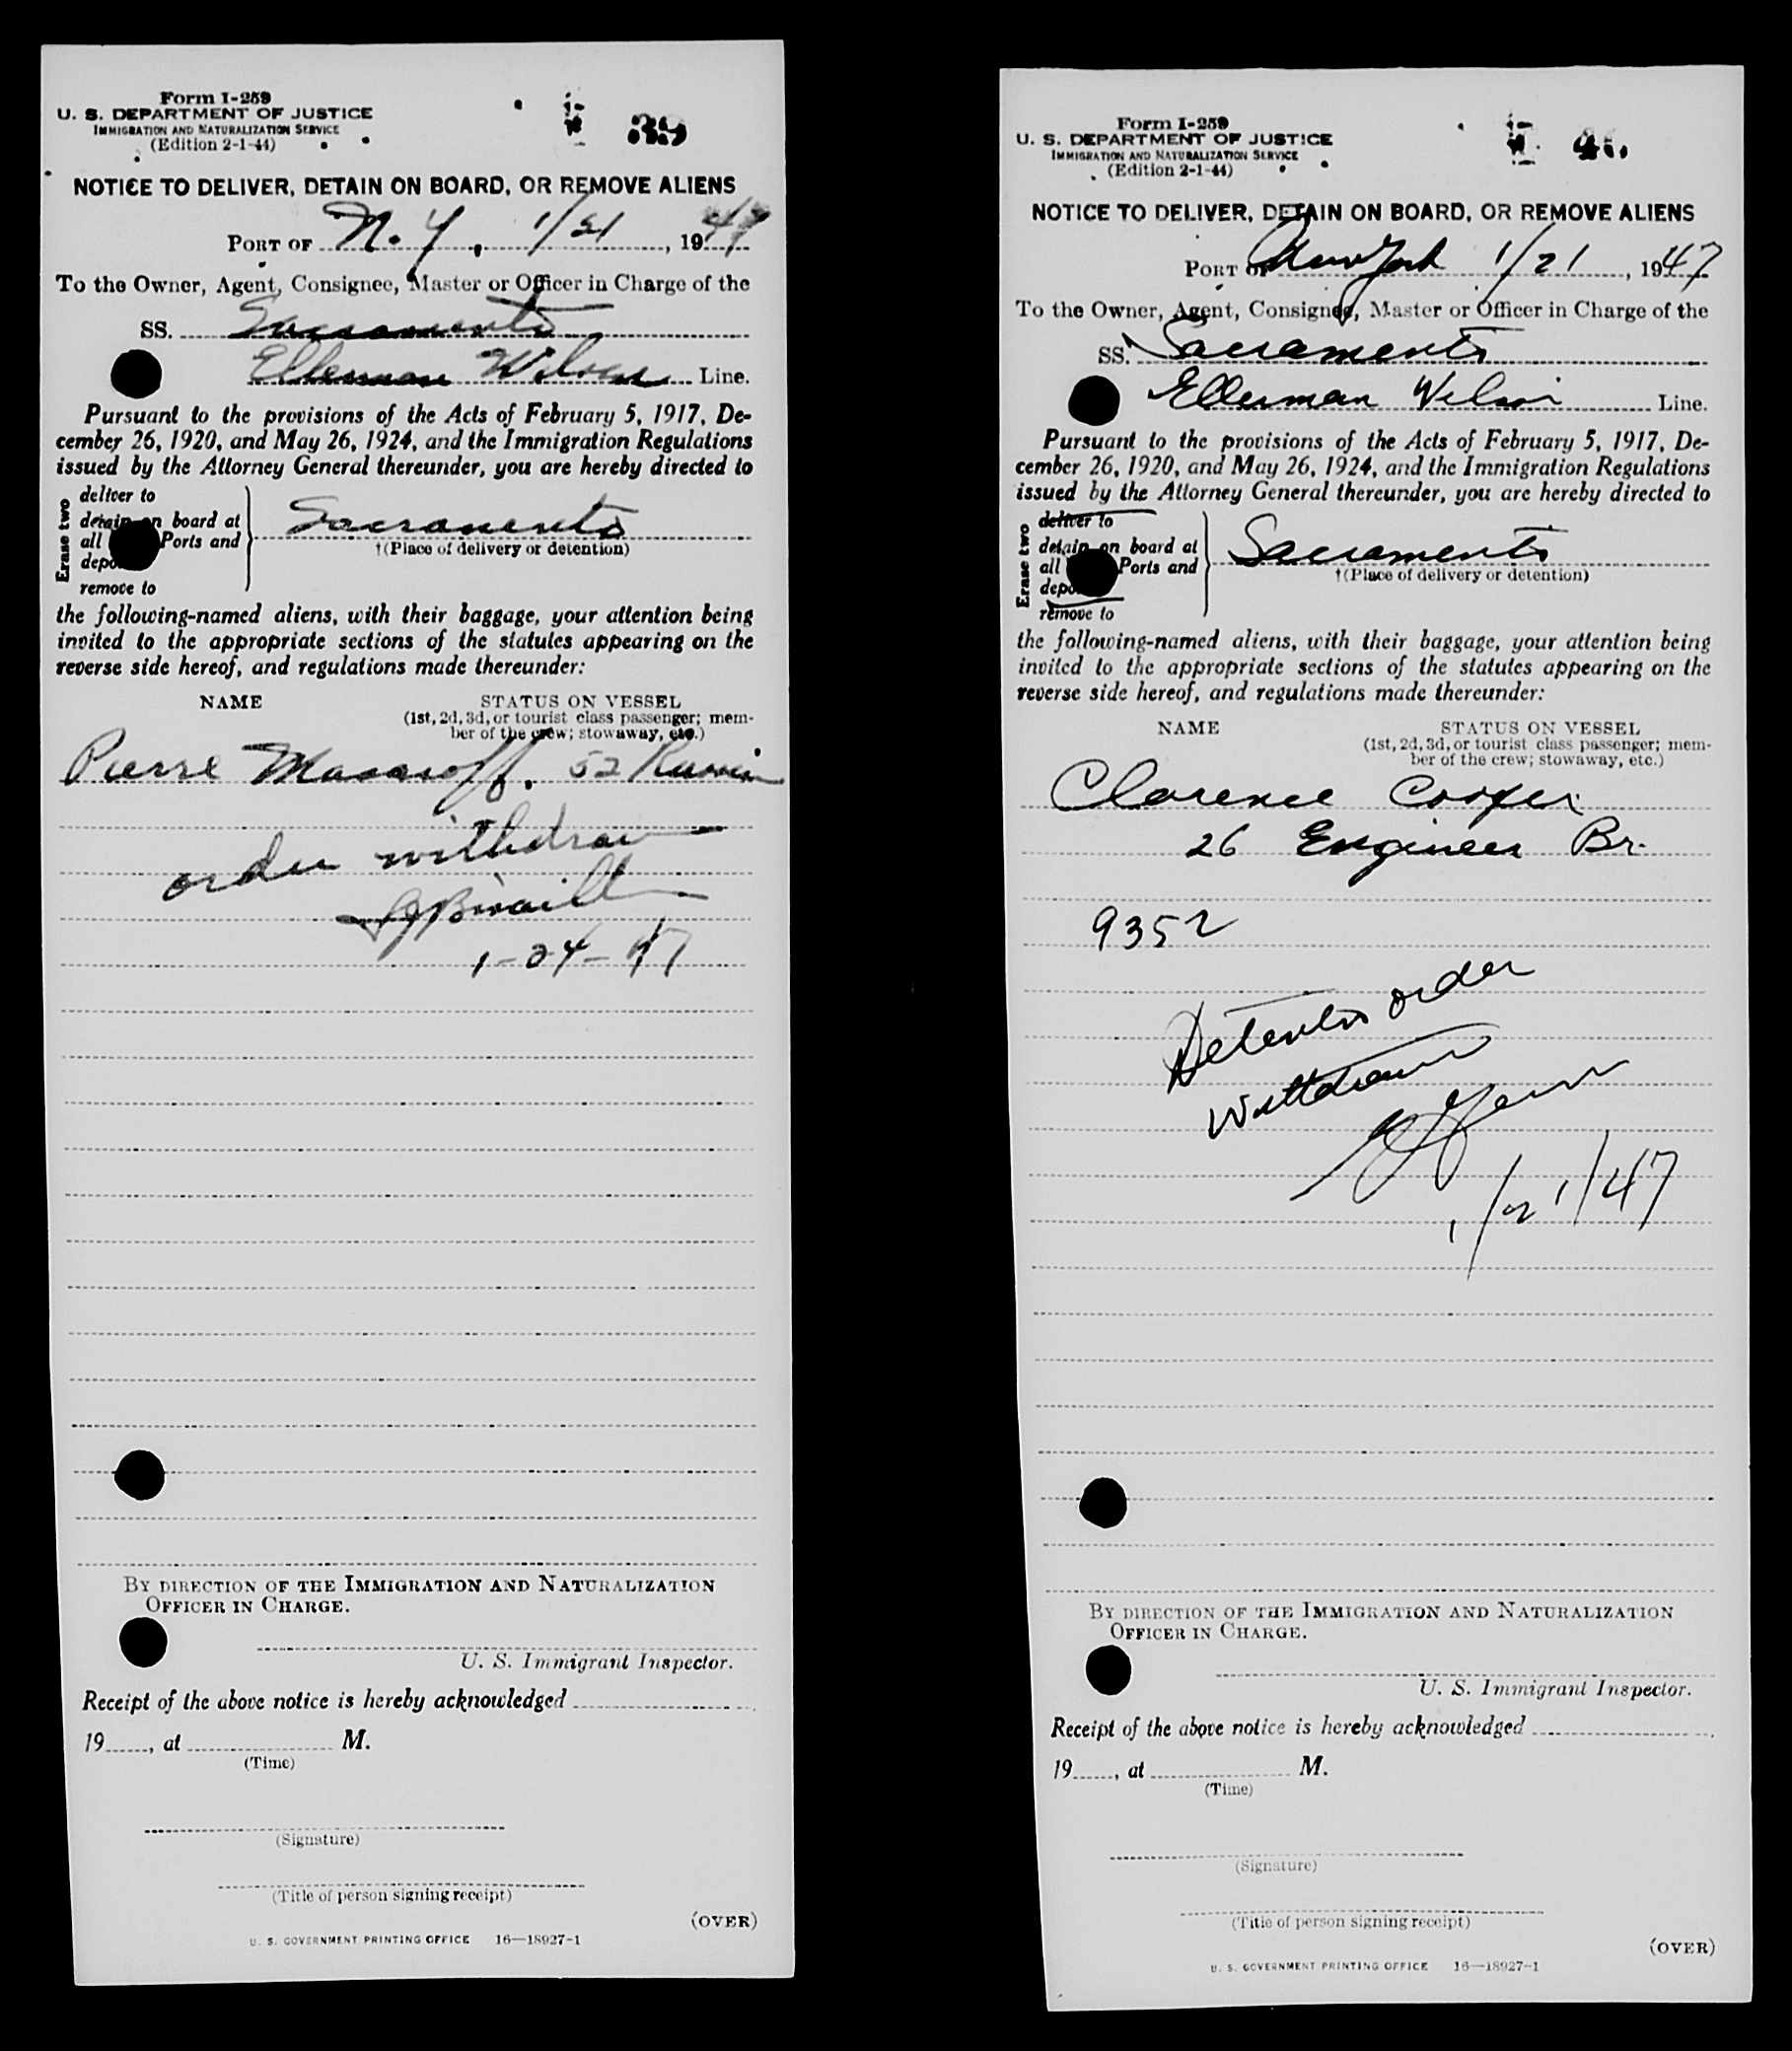 Form I-259
U. S. DEPARTMENT OF JUSTICE
IMMIGRATION AND NATURALIZATION SERVICE
(Edition 2-1-44)
39
NOTICE TO DELIVER, DETAIN ON BOARD, OR REMOVE ALIENS
PORT OF N. Y. 1/21, 1947
To the Owner, Agent, Consignee, Master or Officer in Charge of the
SS. Sacramento
Ellerman Wilson Line.
Pursuant to the provisions of the Acts of February 5, 1917, De-
cember 26, 1920, and May 26, 1924, and the Immigration Regulations
issued by the Attorney General thereunder, you are hereby directed to
Erase two
deliver to
detain on board at
all Ports and
remove to
Sacramento
†(Place of delivery or detention)
the following-named aliens, with their baggage, your attention being
invited to the appropriate sections of the statutes appearing on the
reverse side hereof, and regulations made thereunder:
NAME STATUS ON VESSEL
(1st, 2d, 3d, or tourist class passenger; mem-
ber of the crew; stowaway, etc.)
Pierre 52
order withdrawn
1-24-47
BY DIRECTION OF THE IMMIGRATION AND NATURALIZATION
OFFICER IN CHARGE.
U. S. Immigrant Inspector.
Receipt of the above notice is hereby acknowledged
19, at M.
(Time)
(Signature)
(Title of person signing receipt)
(OVER)
U. S. GOVERNMENT PRINTING OFFICE 16—18927-1
Form I-259
U. S. DEPARTMENT OF JUSTICE
IMMIGRATION AND NATURALIZATION SERVICE
(Edition 2-1-44)
NOTICE TO DELIVER, DETAIN ON BOARD, OR REMOVE ALIENS
PORT OF New York 1/21, 1947
To the Owner, Agent, Consignee, Master or Officer in Charge of the
SS. Sacramento
Ellerman Wilson Line.
Pursuant to the provisions of the Acts of February 5, 1917, De-
cember 26, 1920, and May 26, 1924, and the Immigration Regulations
issued by the Attorney General thereunder, you are hereby directed to
Erase two
deliver to
detain on board at
all Ports and
remove to
Sacramento
†(Place of delivery or detention)
the following-named aliens, with their baggage, your attention being
invited to the appropriate sections of the statutes appearing on the
reverse side hereof, and regulations made thereunder:
NAME STATUS ON VESSEL
(1st, 2d, 3d, or tourist class passenger; mem-
ber of the crew; stowaway, etc.)
Clarence Cooper
26 Engineer Br.
9352
Detention order
Withdrawn
1/21/47
BY DIRECTION OF THE IMMIGRATION AND NATURALIZATION
OFFICER IN CHARGE.
U. S. Immigrant Inspector.
Receipt of the above notice is hereby acknowledged
19, at M.
(Time)
(Signature)
(Title of person signing receipt)
(OVER)
U. S. GOVERNMENT PRINTING OFFICE 16—18927-1